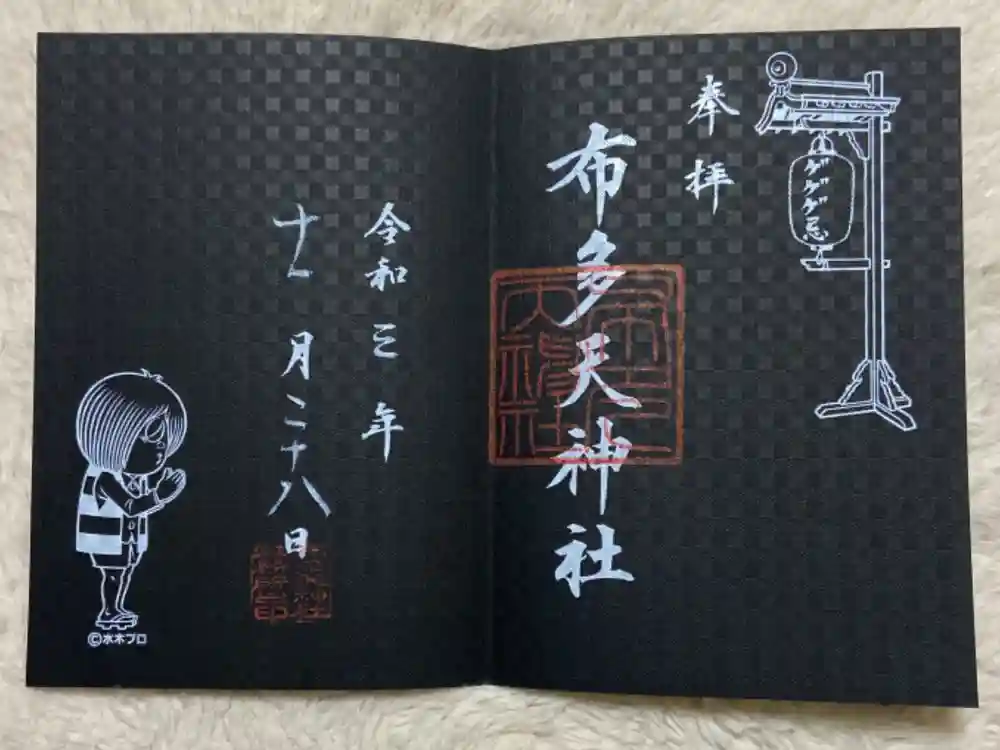 ゲゲゲ忌
奉拝
布多天神社
令和三年
十一月二十八日
©水木プロ